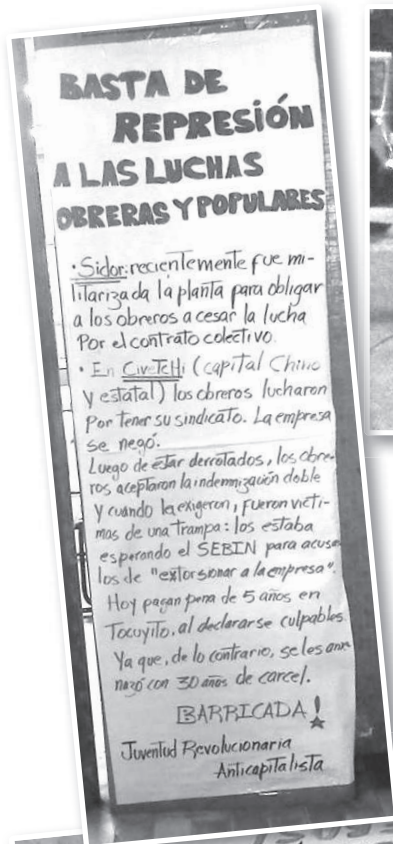 BASTA DE
REPRESIÓN
A LAS LUCHAS
OBRERAS Y POPULARES
• Sidor: recientemente fue mi-
litarizada la planta para obligar
a los obreros a cesar la lucha
Por el contrato colectivo.
• En CivetcHi (capital Chino
y estatal) los obreros lucharon
Por tener su sindicato. La empresa
se negó.
Luego de estar derrotados, los obre-
ros aceptaron la indemnización doble
y cuando la exigeron, fueron vícti-
mas de una trampa: los estaba
esperando el SEBIN para acusar
los de "extorsionar a la empresa".
Hoy pagan pena de 5 años en
Tocuyito, al declararse culpables.
Ya que, de lo contrario, se les ame
nazó con 30 años de carcel.
BARRICADA!
Juventud Revolucionaria
Anticapitalista